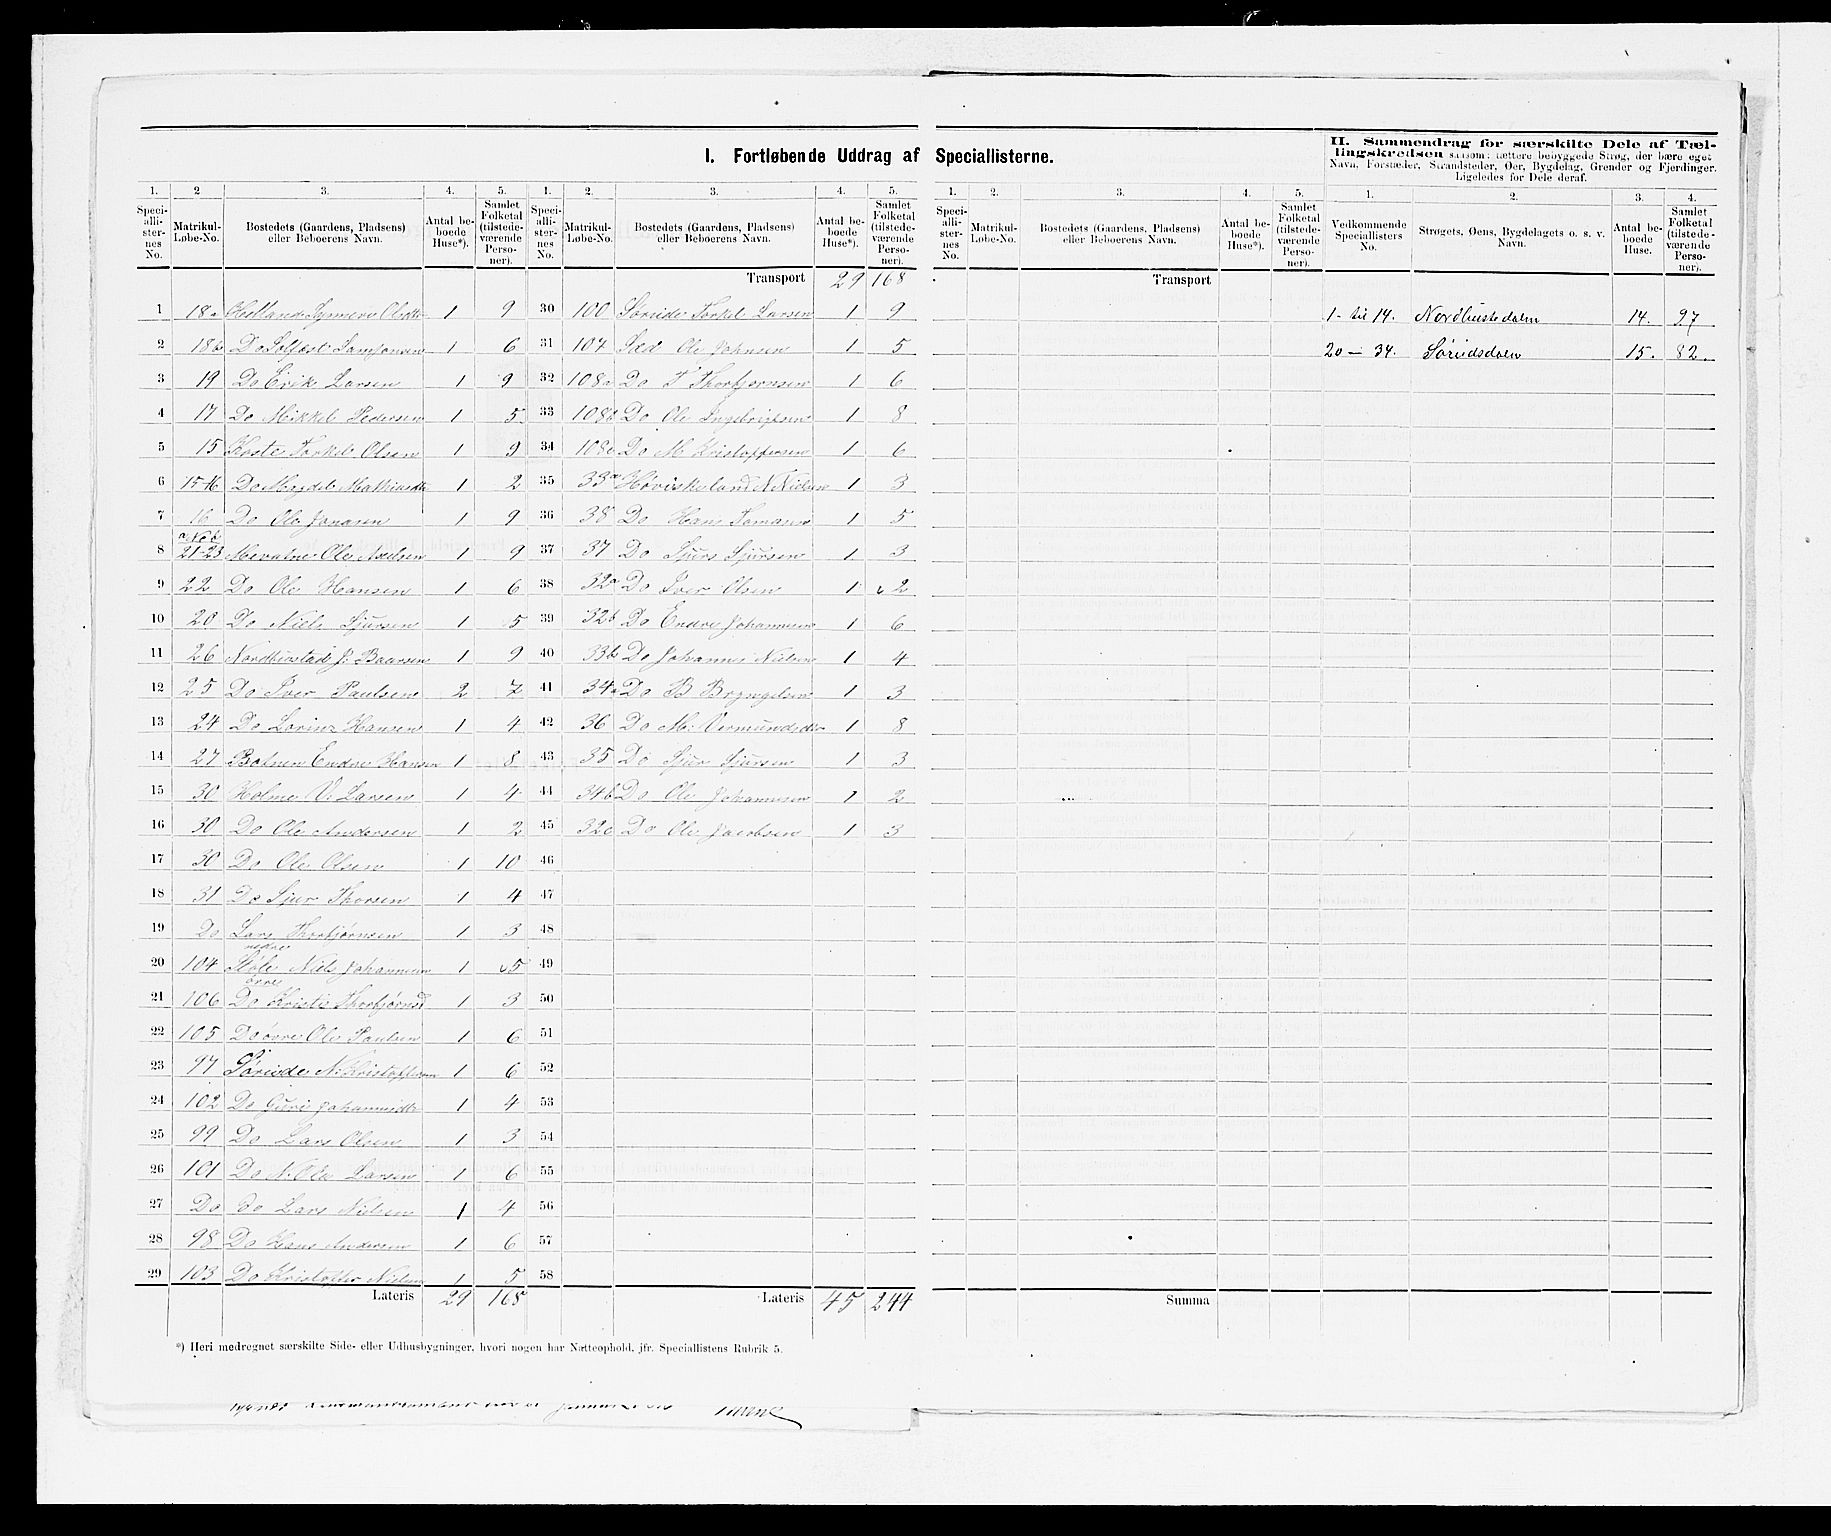 I. Fortløbende Uddrag af Speciallisterne.
II. Sammendrag for særskilte Dele af Tæl-
lingskredsen saasom: tættere bebyggede Strøg, der bære eget
Navn, Forstæder, Strandsteder, Øer, Bygdelag, Grender og Fjerdinger.
Ligeledes for Dele deraf.
1. 2 3. 4. 5. 1. 2. 3. 4. 5. 1. 2. 3. 4. 5. 1. 2. 3. 4.
Speci-alli-ster-nes No. Matrikul-Løbe-No. Bostedets (Gaardens, Pladsens) eller Beboerens Navn. Antal be-boede Huse*). Samlet Folketal (tilstede-værende Perso-ner).
Speci-alli-ster-nes No. Matrikul-Løbe-No. Bostedets (Gaardens, Pladsens) eller Beboerens Navn. Antal be-boede Huse*). Samlet Folketal (tilstede-værende Perso-ner).
Speci-alli-ster-nes No. Matrikul-Løbe-No. Bostedets (Gaardens, Pladsens) eller Beboerens Navn. Antal be-boede Huse*). Samlet Folketal (tilstede-værende Perso-ner).
Vedkommende Speciallisters No. Strøgets, Øens, Bygdelagets o. s. v. Navn. Antal be-boede Huse. Samlet Folketal (tilstede-værende Perso-ner).
Transport 29 168 Transport
1 18a Helland 1 9 30 100 Sørude Torkel Larsen 1 9 1 til 14. Nordhusdalen 14. 97
2 18b Do 1 6 31 107 Sæd Ole Johnsen 1 5 20 — 34. Sørudsdalen 15. 82
3 19 Do Erik Larsen 1 9 32 108a Do T Thorbjørnsen 1 6
4 17 Do Mikkel Pedersen 1 5 33 108b Do Ole Ingebrigtsen 1 8
5 15 Torkel Olsen 1 9 34 108c Do M Kristoffersen 1 6
6 15-16 Do 1 2 35 33a N Nielsen 1 3
7 16 Do Ole Jonasen 1 9 36 38 Do Hans Tomasen 1 5
8 21-23 Ole Axelsen 1 9 37 37 Do Sjurs Sjursen 1 3
9 22 Do Ole Hansen 1 6 38 32a Do Iver Olsen 1 2
10 20 Do Niels Sjursen 1 5 39 32b Do Endre Johannesen 1 6
11 26 1 9 40 33b Do Johannes Nielsen 1 4
12 25 Do Iver Paulsen 2 7 41 34a Do B Brynjelsen 1 3
13 24 Do Hansen 1 4 42 36 Do M: Vermundsdtr 1 8
14 27 Endre Hansen 1 8 43 35 Do Sjur Sjursen 1 3
15 30 Holme O: Larsen 1 4 44 34b Do Ole Johannesen 1 2
16 30 Do Ole Andersen 1 2 45 32c Do Ole Jacobsen 1 3
17 30 Do Ole Olsen 1 10 46
18 31 Do Sjur Thorsen 1 4 47
19 Do Lars Thorbjørnsen 1 3 48
nedre
20 104 Niels Johannesen 1 5 49
øvre
21 106 Do Kristie Thorbjørnsd 1 3 50
22 105 Do øvre Ole Paulsen 1 6 51
23 97 Sørude N: Kristoffersen 1 6 52
24 102 Do Guri Johannesdtr 1 4 53
25 99 Do Lars Olsen 1 3 54
26 101 Do N: Ole Larsen 1 6 55
27 Do Do Lars Nielsen 1 4 56
28 98 Do Hans Andersen 1 6 57
29 103 Do Kristoffer Nielsen 1 5 58
Lateris 29 168 Lateris 45 244 Summa
*) Heri medregnet særskilte Side- eller Udhusbygninger, hvori nogen har Natteophold, jfr. Speciallistens Rubrik 5.